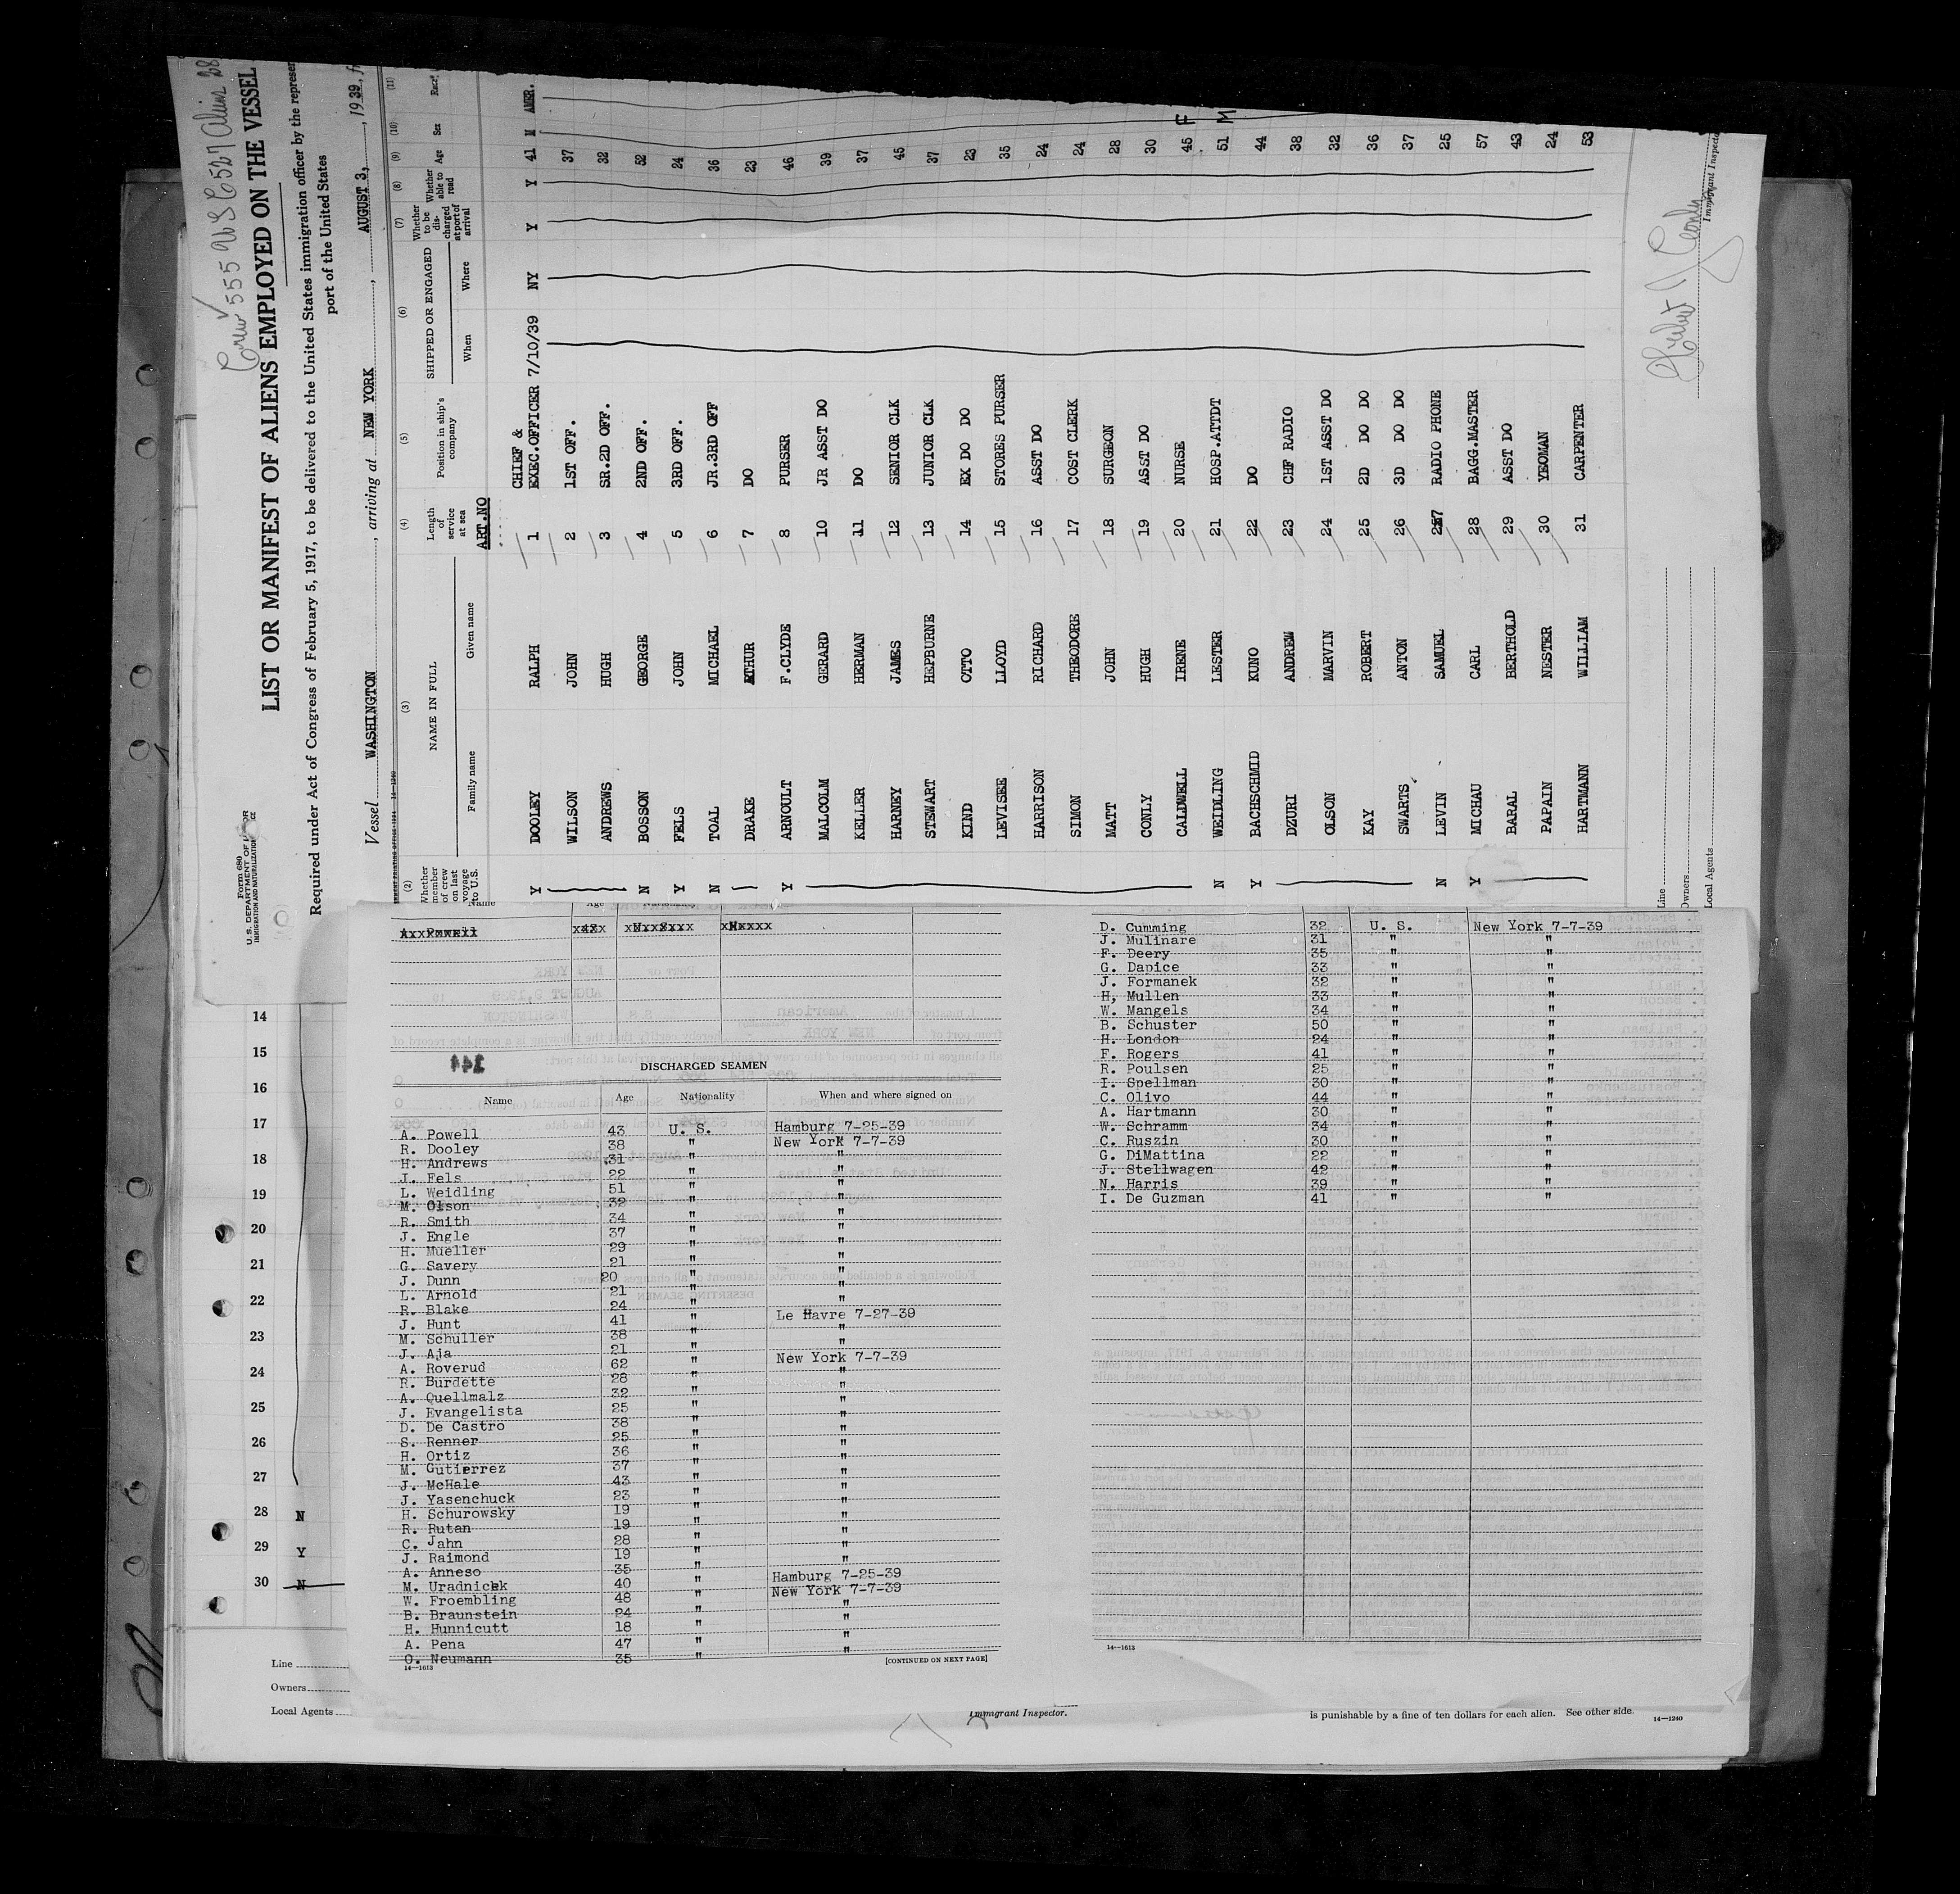 Crew 555 USC 527 Alien 28
Form 680
U. S. DEPARTMENT OF LABOR
IMMIGRATION AND NATURALIZATION
LIST OR MANIFEST OF ALIENS EMPLOYED ON THE VESSEL
Required under Act of Congress of February 5, 1917, to be delivered to the United States immigration officer by the represen
port of the United States
Vessel WASHINGTON , arriving at NEW YORK , AUGUST 3, , 1939, fr
(2) (3) (4) (5) (6) (7) (8) (9) (10) (11)
Whether member of crew on last voyage to U.S. NAME IN FULL Family name Given name Length of service at sea Position in ship's company SHIPPED OR ENGAGED When Where Whether to be discharged at port of arrival Whether able to read Age Sex Race
ART.NO
CHIEF &
Y DOOLEY RALPH 1 EXEC.OFFICER 7/10/39 NY Y Y 41 M AMER.
WILSON JOHN 2 1ST OFF. 37
ANDREWS HUGH 3 SR.2D OFF. 32
N BOSSON GEORGE 4 2ND OFF. 52
Y FELS JOHN 5 3RD OFF. 24
N TOAL MICHAEL 6 JR.3RD OFF 36
DRAKE ATHUR 7 DO 23
Y ARNOULT F.CLYDE 8 PURSER 46
MALCOLM GERARD 10 JR ASST DO 39
KELLER HERMAN 11 DO 37
HARNEY JAMES 12 SENIOR CLK 45
STEWART HEPBURNE 13 JUNIOR CLK 37
KIND OTTO 14 EX DO DO 23
LEVISEE LLOYD 15 STORES PURSER 35
HARRISON RICHARD 16 ASST DO 24
SIMON THEODORE 17 COST CLERK 24
MATT JOHN 18 SURGEON 28
CONLY HUGH 19 ASST DO 30
CALDWELL IRENE 20 NURSE 45 F
N WEIDLING LESTER 21 HOSP.ATTDT 51 M
Y BACHSCHMID KUNO 22 DO 44
DZURI ANDREW 23 CHF RADIO 38
OLSON MARVIN 24 1ST ASST DO 32
KAY ROBERT 25 2D DO DO 36
SWARTS ANTON 26 3D DO DO 37
N LEVIN SAMUEL 27 RADIO PHONE 25
Y MICHAU CARL 28 BAGG.MASTER 57
BARAL BERTHOLD 29 ASST DO 43
PAPAIN NESTER 30 YEOMAN 24
HARTMANN WILLIAM 31 CARPENTER 53
Line
Owners
Local Agents
Immigrant Inspector
14
15
16
17
18
19
20
21
22
23
24
25
26
27
28 N
29 Y
30 N
Line
Owners
Local Agents
DISCHARGED SEAMEN
Name Age Nationality When and where signed on
A. Powell 43 U. S. Hamburg 7-25-39
R. Dooley 38 " New York 7-7-39
H. Andrews 31 " "
J. Fels 22 " "
L. Weidling 51 " "
M. Olson 32 " "
R. Smith 34 " "
J. Engle 37 " "
H. Mueller 29 " "
G. Savery 21 " "
J. Dunn 20 " "
L. Arnold 21 " "
R. Blake 24 " "
J. Hunt 41 " Le Havre 7-27-39
M. Schuller 38 " "
J. Aja 21 " "
A. Roverud 62 " New York 7-7-39
R. Burdette 28 " "
A. Quellmalz 32 " "
J. Evangelista 25 " "
D. De Castro 38 " "
S. Renner 25 " "
H. Ortiz 36 " "
M. Gutierrez 37 " "
J. McHale 43 " "
J. Yasenchuck 23 " "
H. Schurowsky 19 " "
R. Rutan 19 " "
C. Jahn 28 " "
J. Raimond 19 " "
A. Anneso 35 " "
M. Uradnick 40 " Hamburg 7-25-39
W. Froembling 48 " New York 7-7-39
B. Braunstein 24 " "
H. Hunnicutt 18 " "
A. Pena 47 " "
O. Neumann 35 " "
14—1613
[CONTINUED ON NEXT PAGE]
D. Cumming 32 U. S. New York 7-7-39
J. Mulinare 31 " "
F. Deery 35 " "
G. Dapice 33 " "
J. Formanek 32 " "
H, Mullen 33 " "
W. Mangels 34 " "
B. Schuster 50 " "
H. London 24 " "
F. Rogers 41 " "
R. Poulsen 25 " "
I. Spellman 30 " "
C. Olivo 44 " "
A. Hartmann 30 " "
W. Schramm 34 " "
C. Ruszin 30 " "
G. DiMattina 22 " "
J. Stellwagen 42 " "
N. Harris 39 " "
I. De Guzman 41 " "
14—1613
Immigrant Inspector.
is punishable by a fine of ten dollars for each alien. See other side.
14—1240